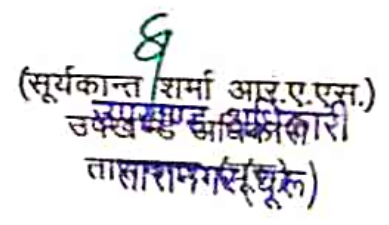 (सूर्यकान्त शर्मा आर.ए.एस.)
उपखण्ड अधिकारी
तारानगर (चूरू)